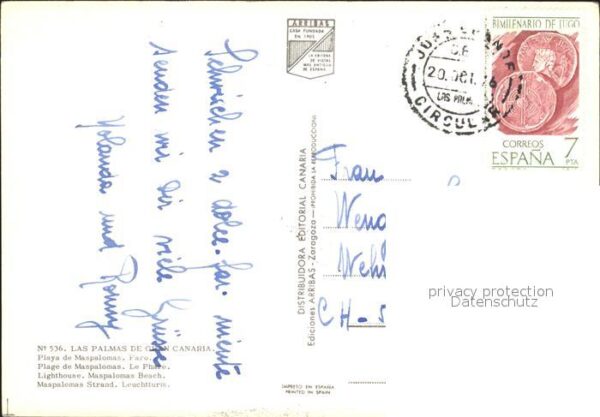 Schwischen 2 dolce-far-niente
senden wir Dir viele Grüsse
Yolanda und Ronny
ARRIBAS
CASA FUNDADA
EN 1905
LA EDITORA
DE VISTAS
MAS ANTIGUA
DE ESPAÑA
DISTRIBUIDORA EDITORIAL CANARIA
Ediciones ARRIBAS - Zaragoza - (PROHIBIDA LA REPRODUCCION)
20 OCT. 76
LAS PALM
CIRCULAR
BIMILENARIO DE LUGO
CORREOS
ESPAÑA
7
PTA
Frau
Wehr
CH-5
privacy protection
Datenschutz
Nº 536. LAS PALMAS DE GRAN CANARIA.
Playa de Maspalomas. Faro.
Plage de Maspalomas. Le Phare.
Lighthouse. Maspalomas Beach.
Maspalomas Strand. Leuchtturm.
IMPRESO EN ESPAÑA
PRINTED IN SPAIN